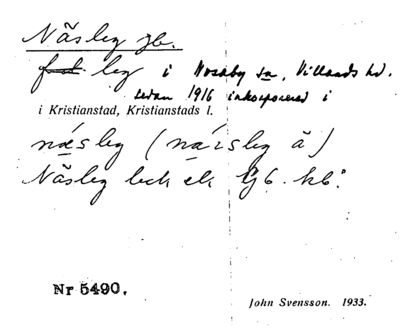 Näsby gb.
by i Nosaby sn, Villands hd.
sedan 1916 inkorporerad i
i Kristianstad, Kristianstads l.
næsby (näisby ä)
Näsby
Nr 5490.
John Svensson. 1933.